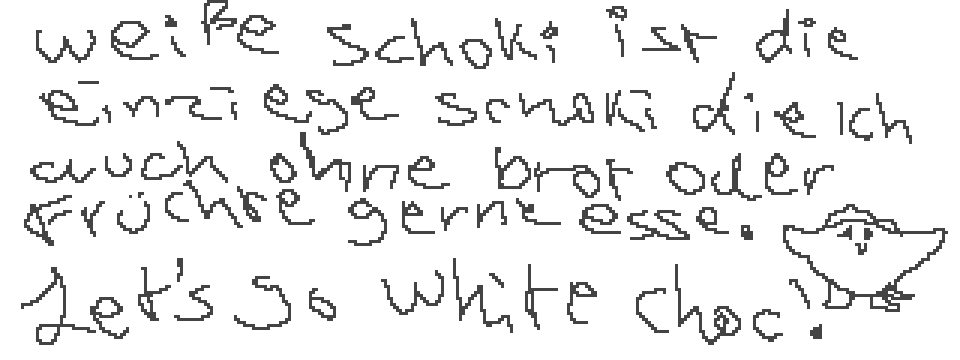 weiße schoki ist die
einziege schoki die ich
auch ohne brot oder
Früchte gerne esse.
Let's go white choc!